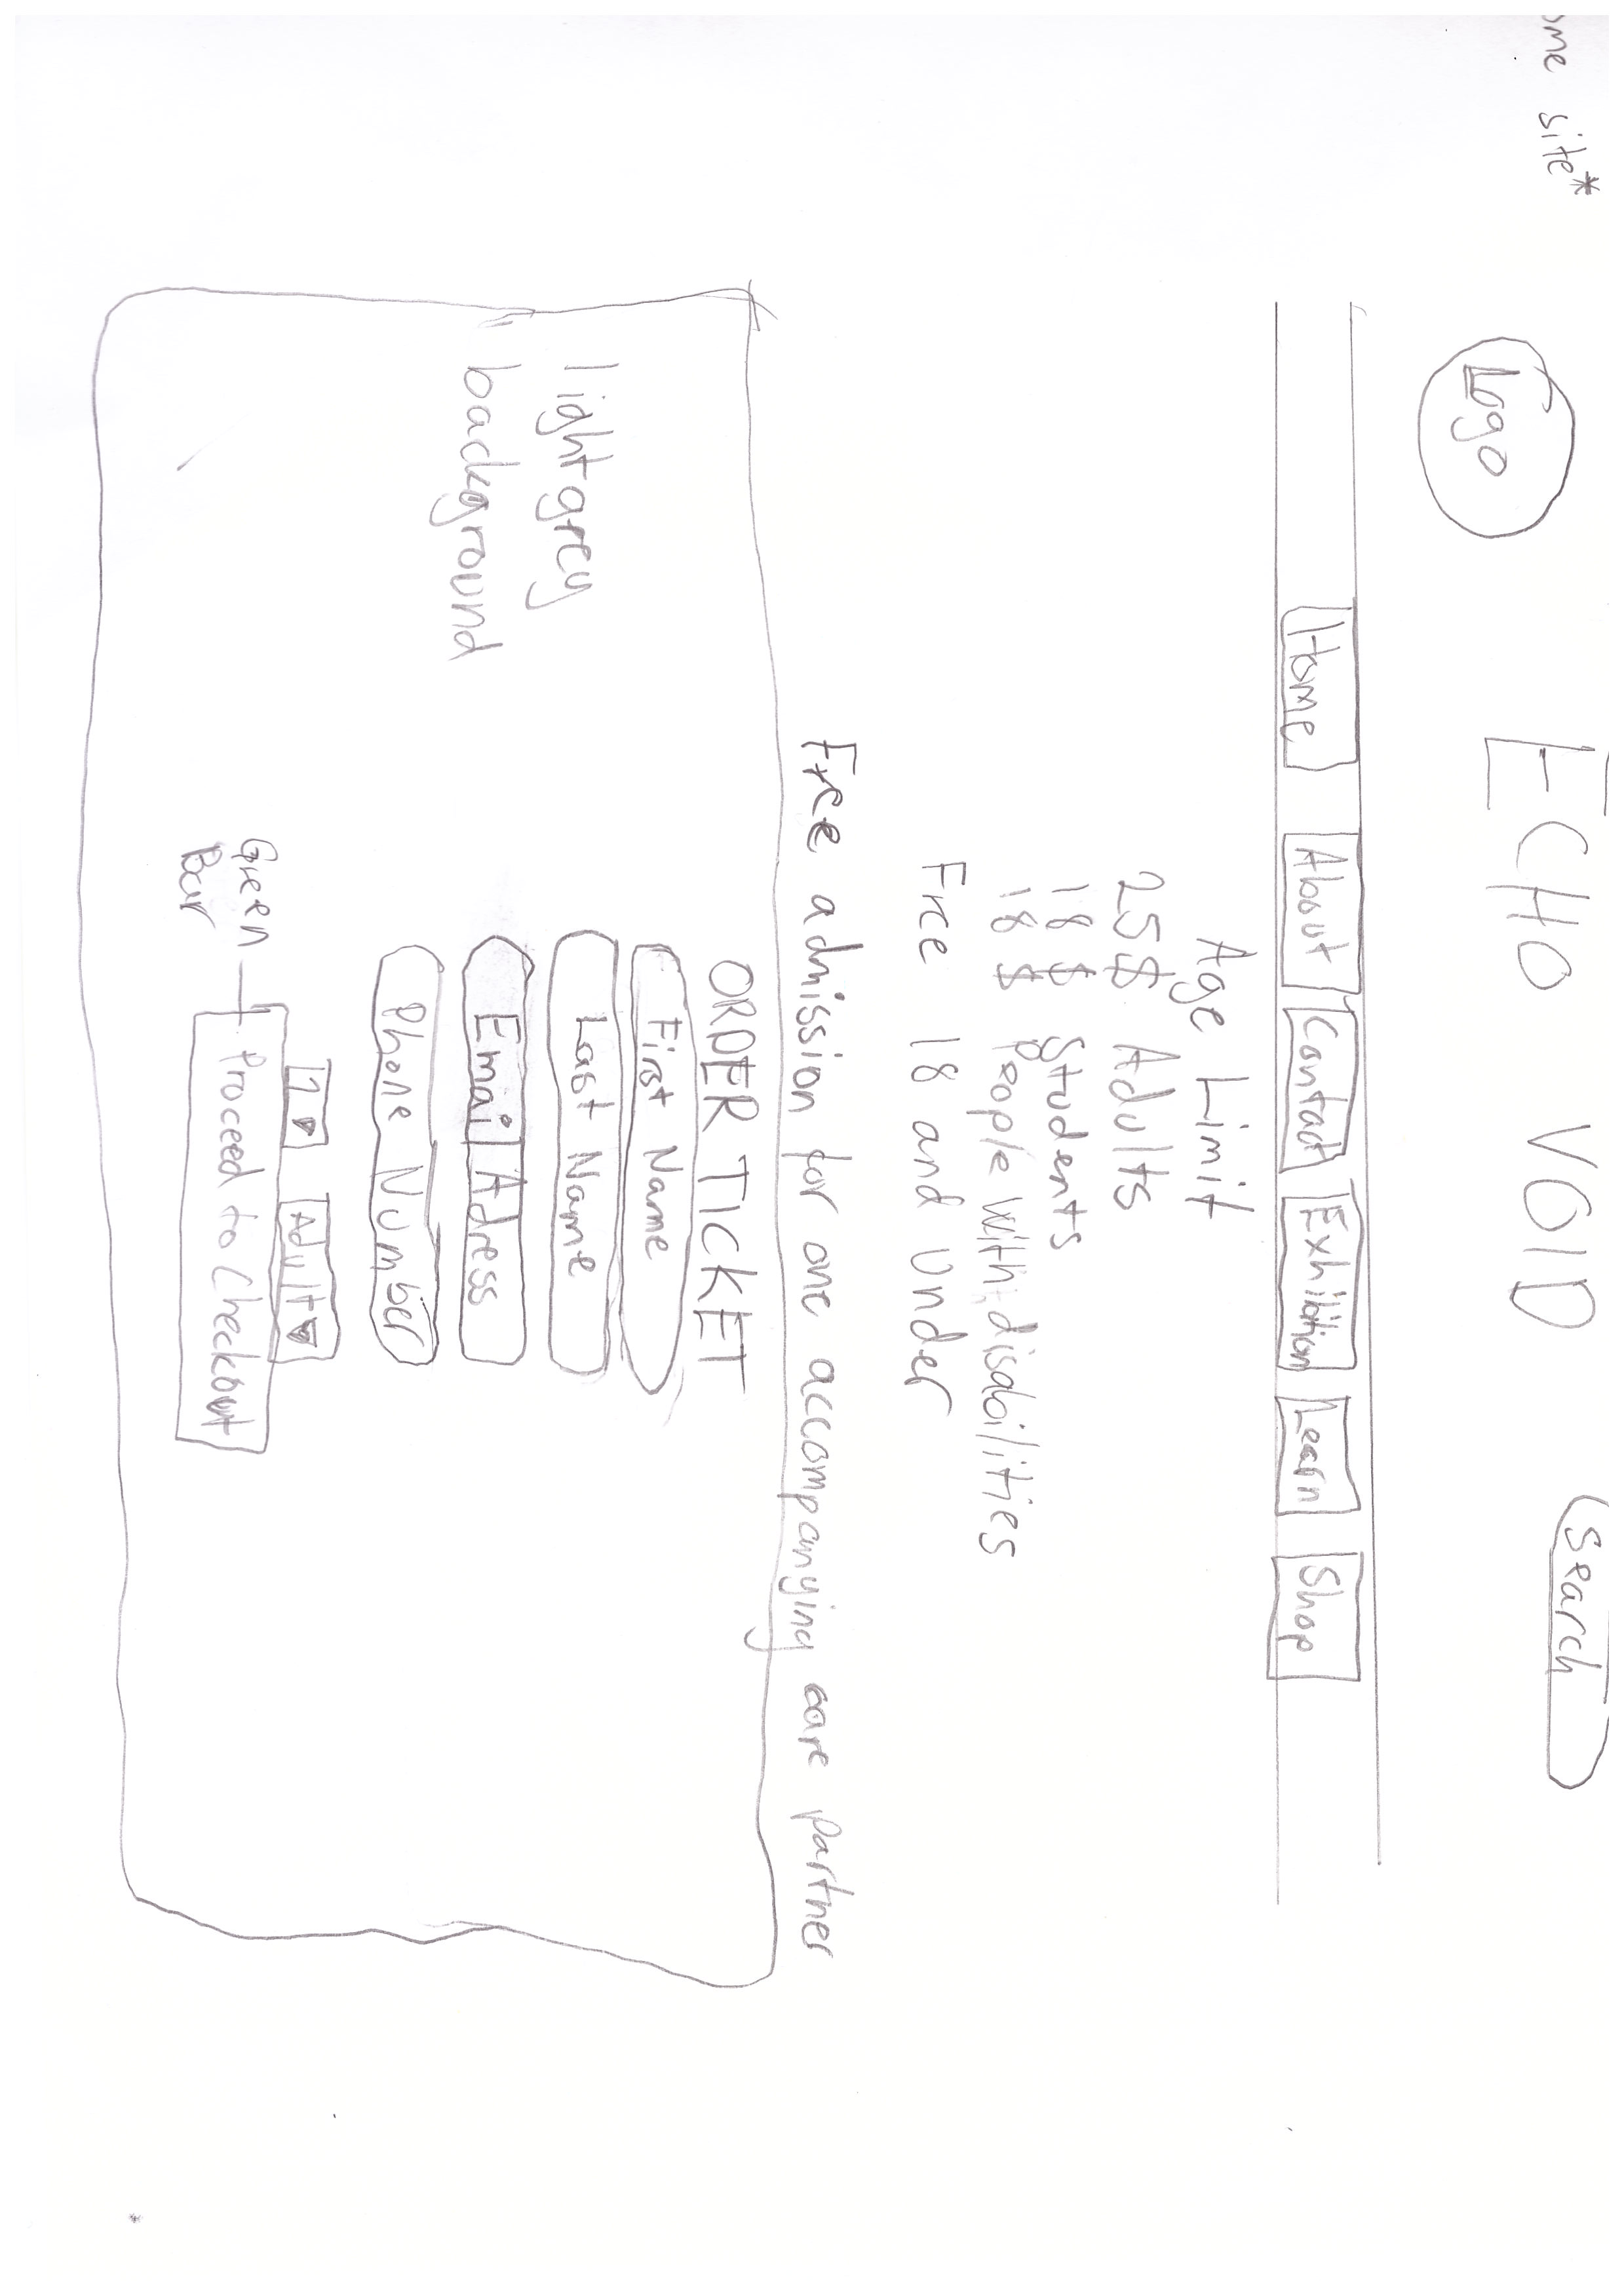 ome site*
Logo
ECHO VOID
Search
Home About Contact Exhibition Learn Shop
Age Limit
25$ Adults
18 $ Students
18 $ People with disabilities
Free 18 and under
Free admission for one accompanying care partner
ORDER TICKET
First Name
Last Name
light grey
background
Email Adress
Phone Number
1 Adult
Green
Bar
Proceed to Checkout